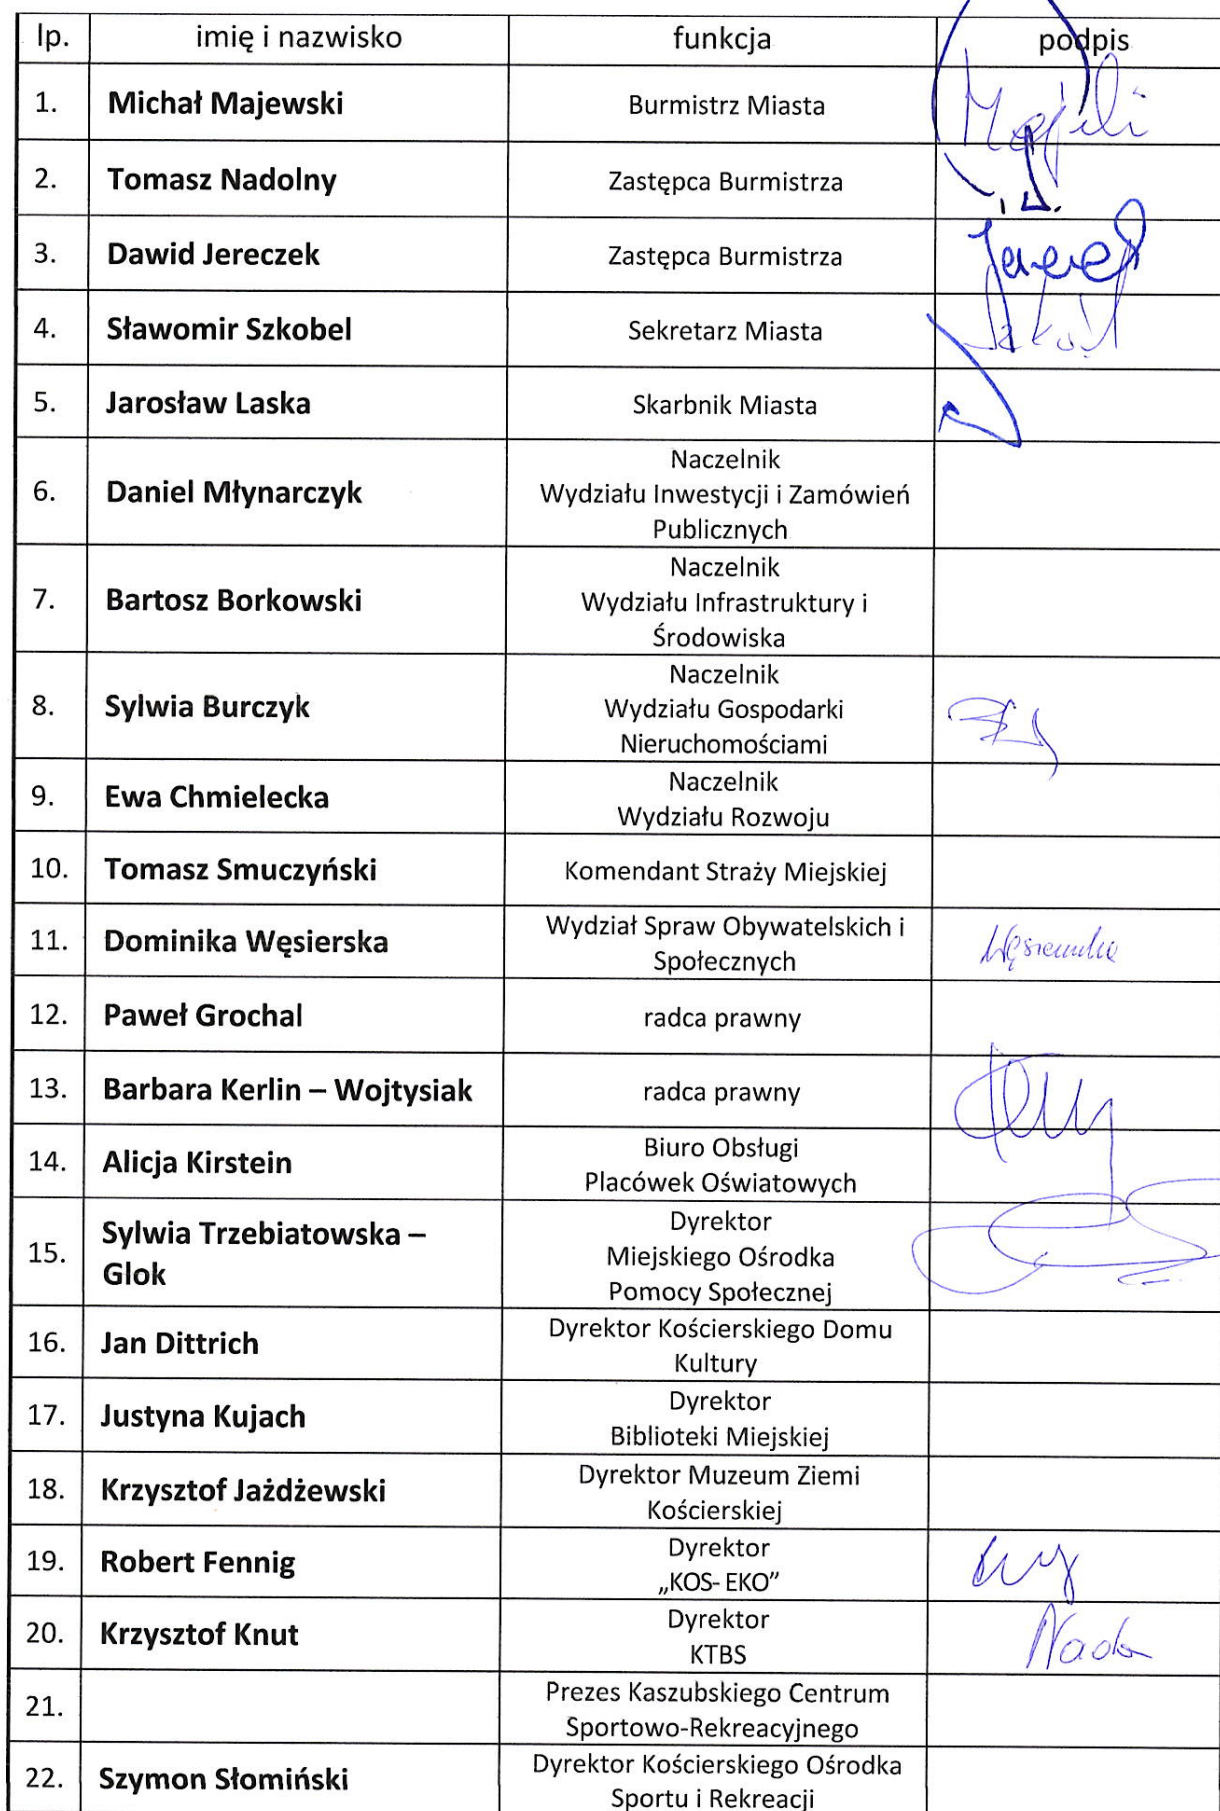 lp. imię i nazwisko funkcja podpis
1. Michał Majewski Burmistrz Miasta
2. Tomasz Nadolny Zastępca Burmistrza
3. Dawid Jereczek Zastępca Burmistrza
4. Sławomir Szkobel Sekretarz Miasta
5. Jarosław Laska Skarbnik Miasta
6. Daniel Młynarczyk Naczelnik
Wydziału Inwestycji i Zamówień
Publicznych
7. Bartosz Borkowski Naczelnik
Wydziału Infrastruktury i
Środowiska
8. Sylwia Burczyk Naczelnik
Wydziału Gospodarki
Nieruchomościami
9. Ewa Chmielecka Naczelnik
Wydziału Rozwoju
10. Tomasz Smuczyński Komendant Straży Miejskiej
11. Dominika Węsierska Wydział Spraw Obywatelskich i
Społecznych Węsierska
12. Paweł Grochal radca prawny
13. Barbara Kerlin – Wojtysiak radca prawny
14. Alicja Kirstein Biuro Obsługi
Placówek Oświatowych
15. Sylwia Trzebiatowska –
Glok
Dyrektor
Miejskiego Ośrodka
Pomocy Społecznej
16. Jan Dittrich Dyrektor Kościerskiego Domu
Kultury
17. Justyna Kujach Dyrektor
Biblioteki Miejskiej
18. Krzysztof Jażdżewski Dyrektor Muzeum Ziemi
Kościerskiej
19. Robert Fennig Dyrektor
„KOS- EKO”
20. Krzysztof Knut Dyrektor
KTBS
21. Prezes Kaszubskiego Centrum
Sportowo-Rekreacyjnego
22. Szymon Słomiński Dyrektor Kościerskiego Ośrodka
Sportu i Rekreacji